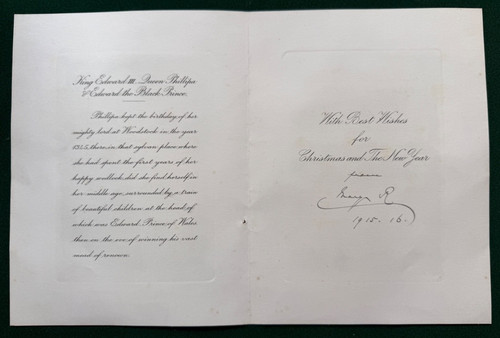 King Edward III. Queen Phillipa
& Edward the Black Prince.
Phillipa kept the birthday of her
mighty lord at Woodstock in the year
there, in that sylvan place where
she had spent the first years of her
happy wedlock did she find herself in
her middle age, surrounded by a train
of beautiful children at the head of
which was Edward, Prince of Wales
then on the eve of winning his vast
meed of renown.
With Best Wishes
for
Christmas and The New Year
from
George R.
1915-16.